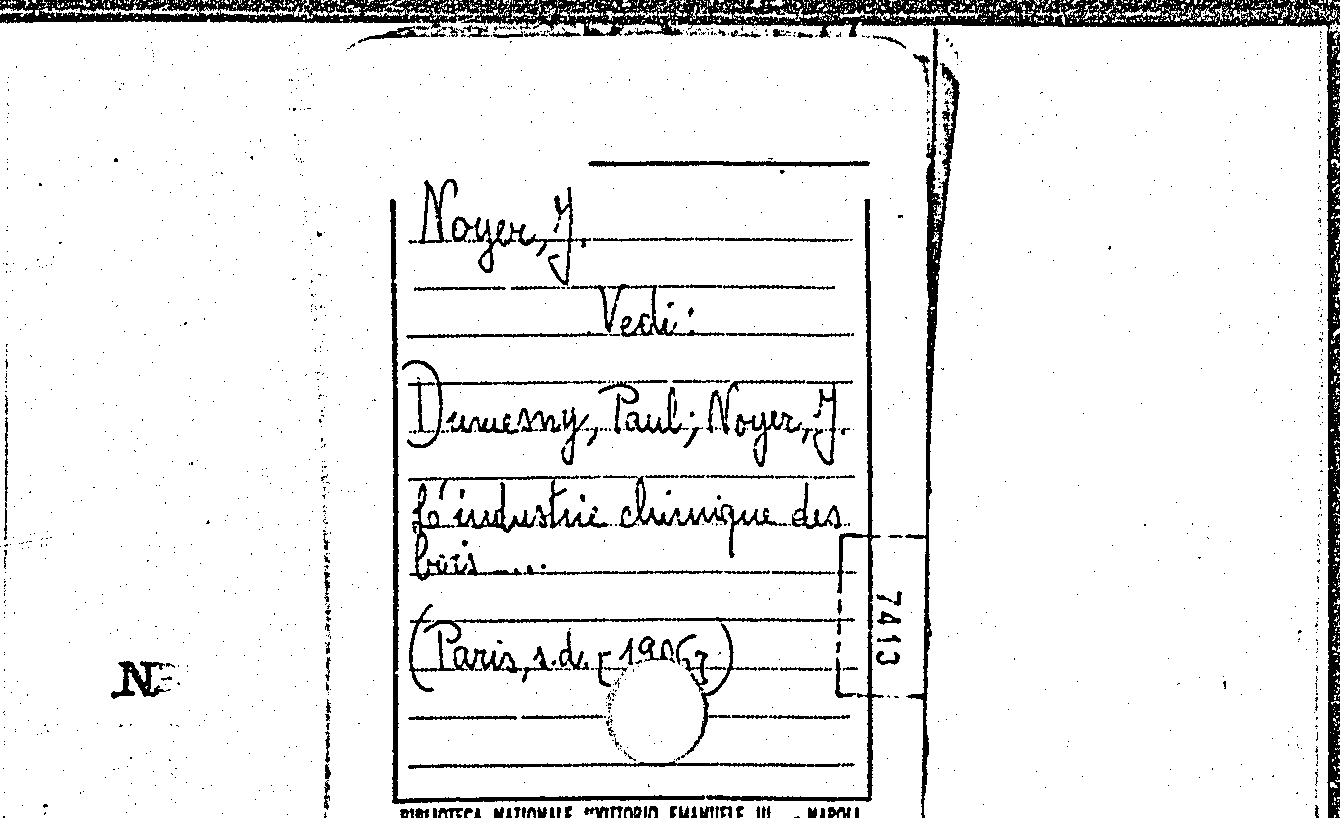 Noyer, J.
Vedi:
Dumesny, Paul; Noyer, J.
L'industrie chimique des
bois ....
(Paris, s.d. [1906])
7413
N
BIBLIOTECA NAZIONALE "VITTORIO EMANUELE III" - NAPOLI